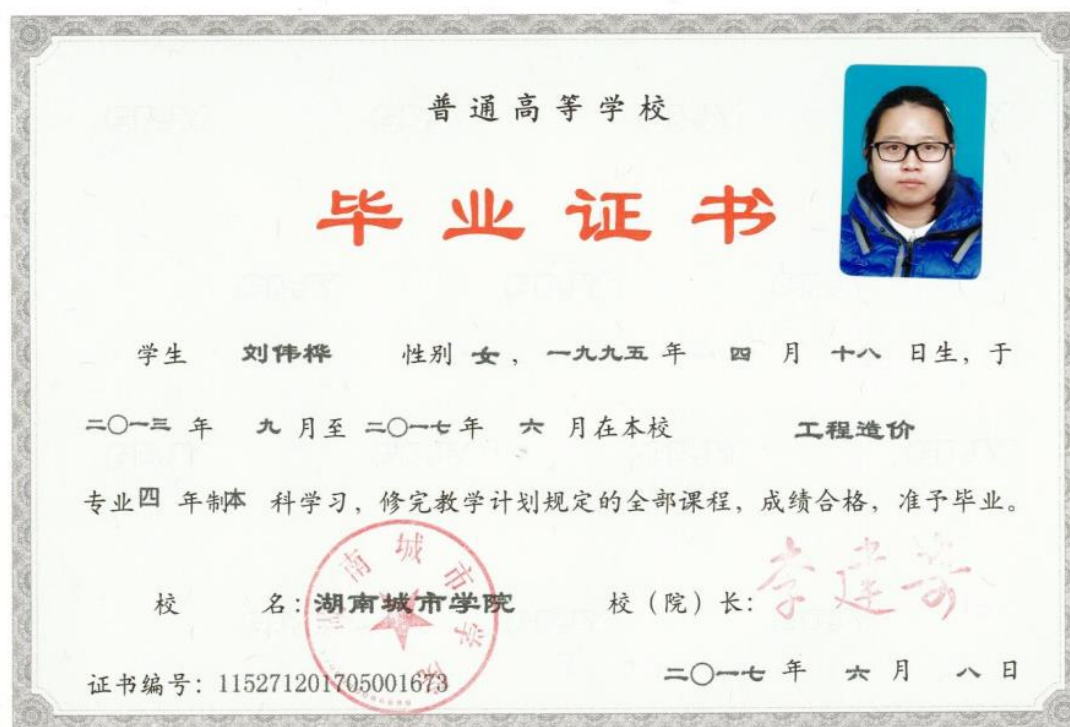 普通高等学校
毕业证书
学生 刘伟桦 性别 女，一九九五 年 四 月 十八 日生，于
二〇一三 年 九 月至 二〇一七 年 六 月在本校 工程造价
专业 四 年制 本 科学习，修完教学计划规定的全部课程，成绩合格，准予毕业。
校 名：湖南城市学院 校（院）长：
湖南城市学院
证书编号：115271201705001673 二〇一七 年 六 月 八 日